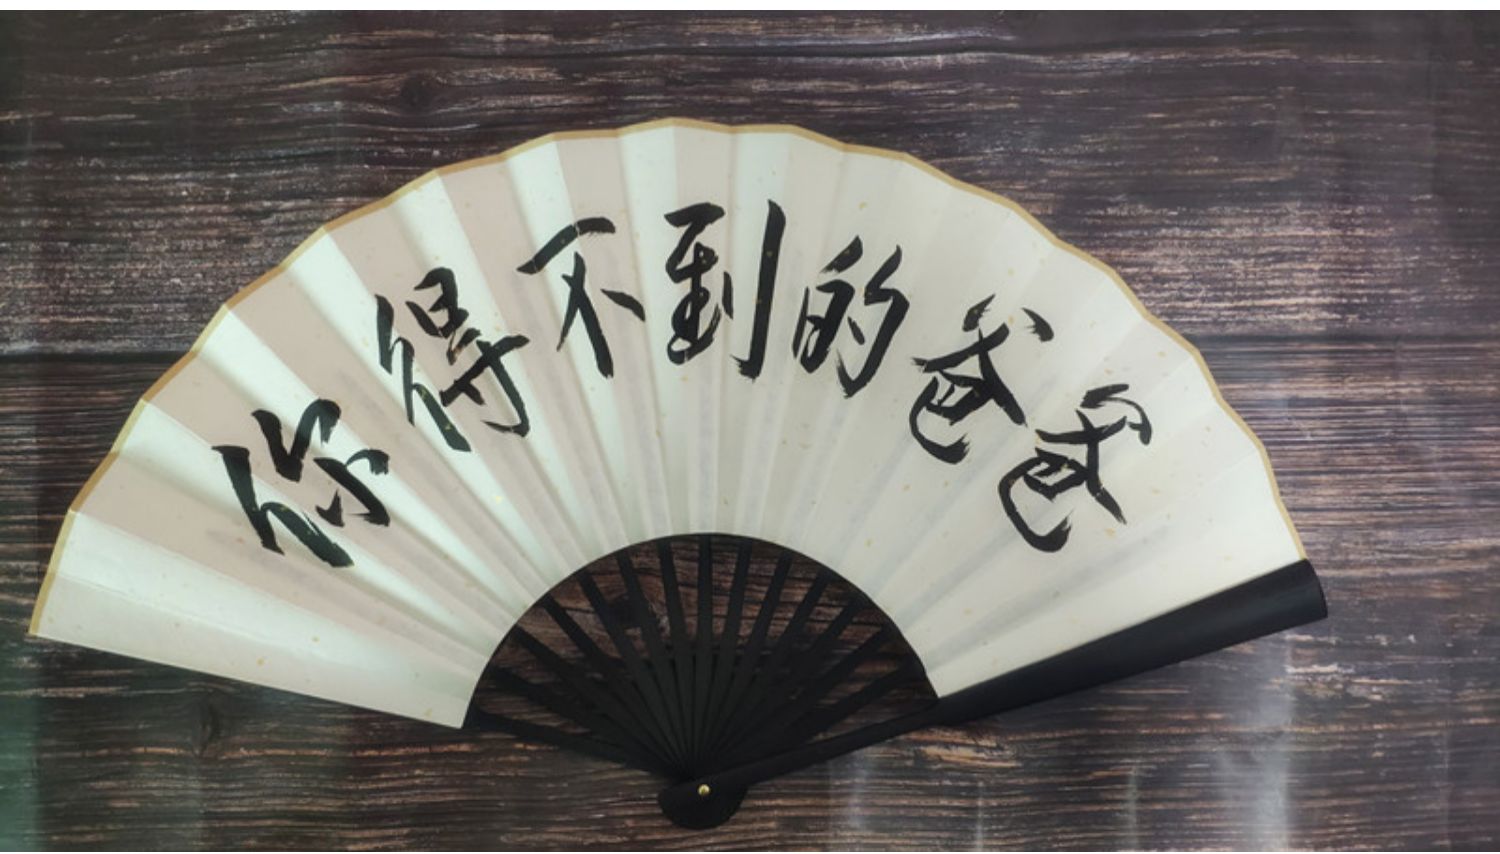 你得不到的爸爸